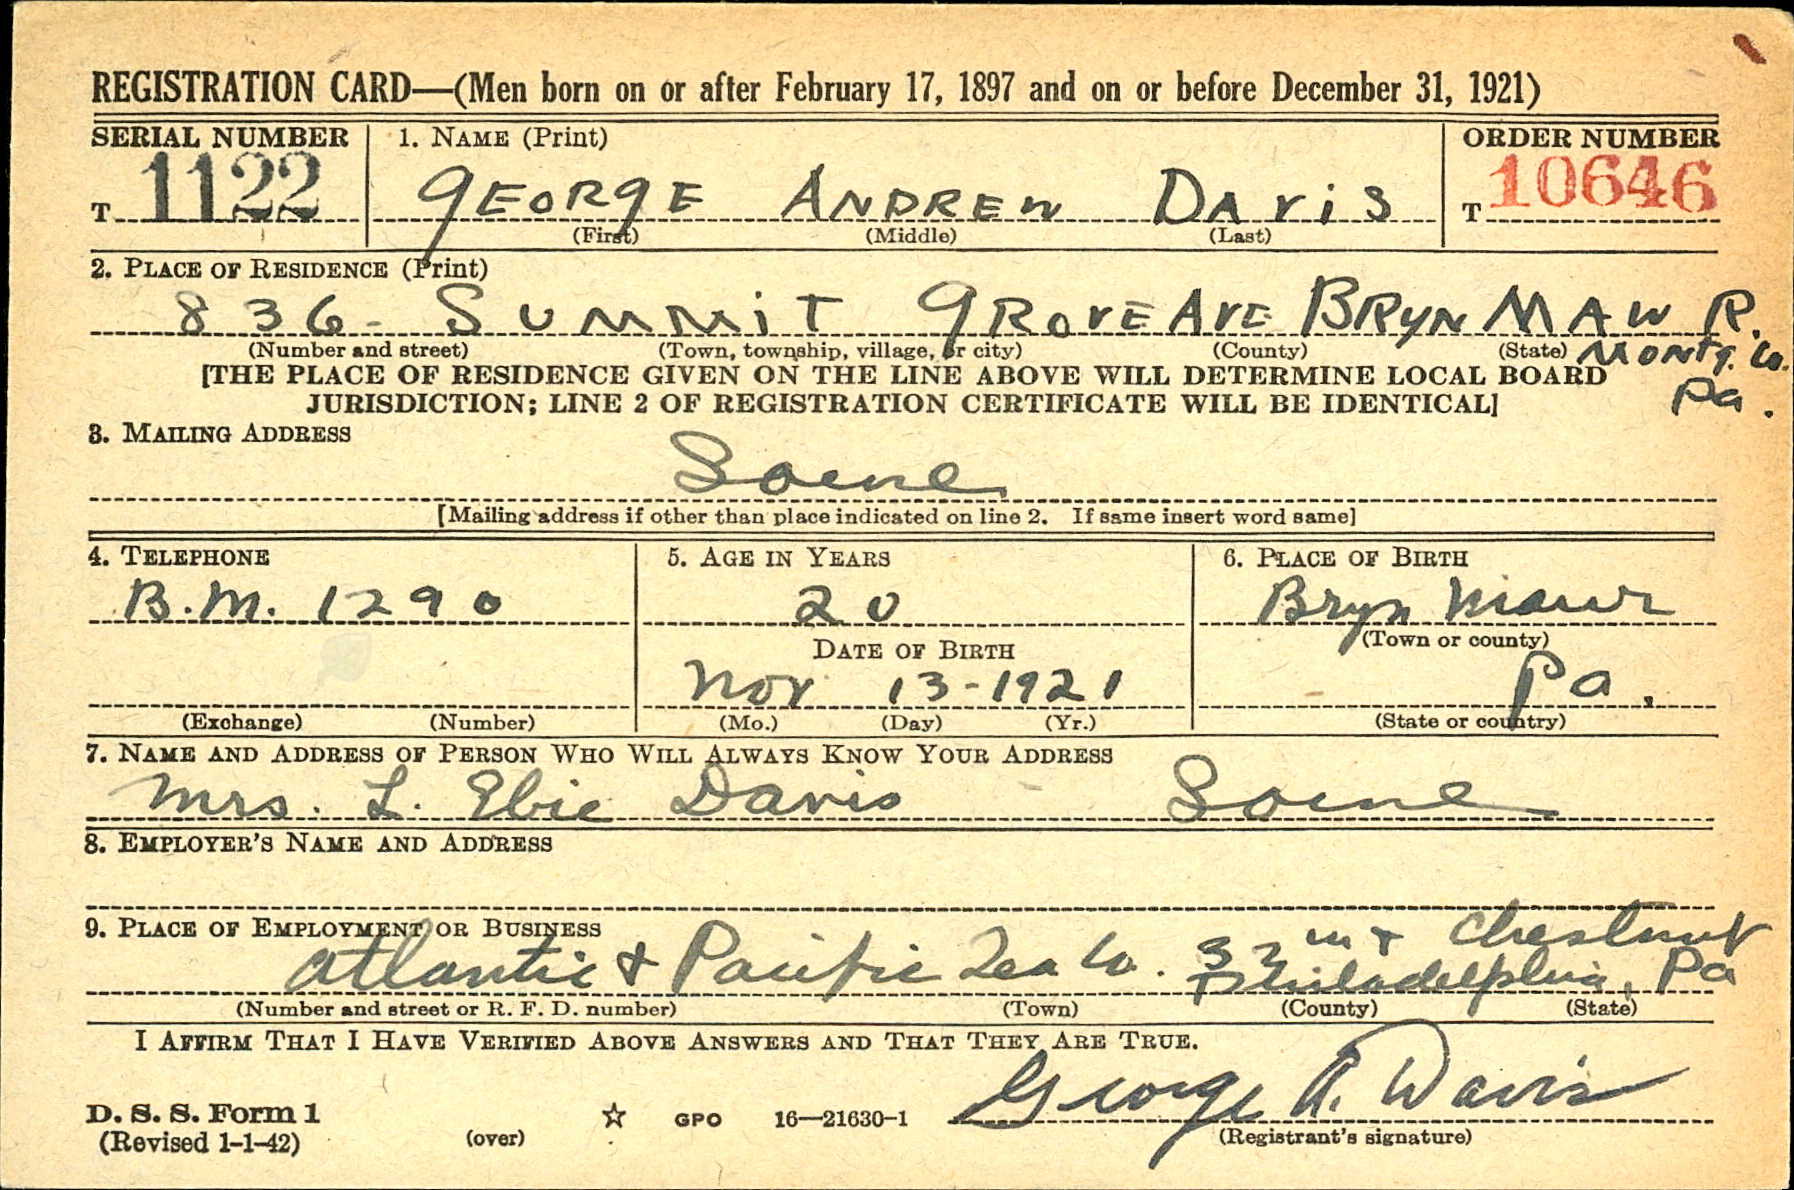 REGISTRATION CARD—(Men born on or after February 17, 1897 and on or before December 31, 1921)
SERIAL NUMBER 1. NAME (Print) ORDER NUMBER
T 1122 GEORGE ANDREW DAVIS T 10646
(First) (Middle) (Last)
2. PLACE OF RESIDENCE (Print)
836 - SUMMIT GROVE AVE BRYN MAWR.
(Number and street) (Town, township, village, or city) (County) (State) MONTG. Co.
[THE PLACE OF RESIDENCE GIVEN ON THE LINE ABOVE WILL DETERMINE LOCAL BOARD
Pa.
JURISDICTION; LINE 2 OF REGISTRATION CERTIFICATE WILL BE IDENTICAL]
3. MAILING ADDRESS
Same
[Mailing address if other than place indicated on line 2. If same insert word same]
4. TELEPHONE 5. AGE IN YEARS 6. PLACE OF BIRTH
B.M. 1290 20 Bryn Mawr
(Town or county)
DATE OF BIRTH
Nov 13-1921 Pa.
(Exchange) (Number) (Mo.) (Day) (Yr.) (State or country)
7. NAME AND ADDRESS OF PERSON WHO WILL ALWAYS KNOW YOUR ADDRESS
Mrs. L. Elsie Davis Same
8. EMPLOYER'S NAME AND ADDRESS
9. PLACE OF EMPLOYMENT OR BUSINESS
Atlantic & Pacific Tea Co. + Chestnut
Philadelphia, Pa
(Number and street or R. F. D. number) (Town) (County) (State)
I AFFIRM THAT I HAVE VERIFIED ABOVE ANSWERS AND THAT THEY ARE TRUE.
George A. Davis
D. S. S. Form 1 GPO 16—21630-1
(Revised 1-1-42) (over) (Registrant's signature)